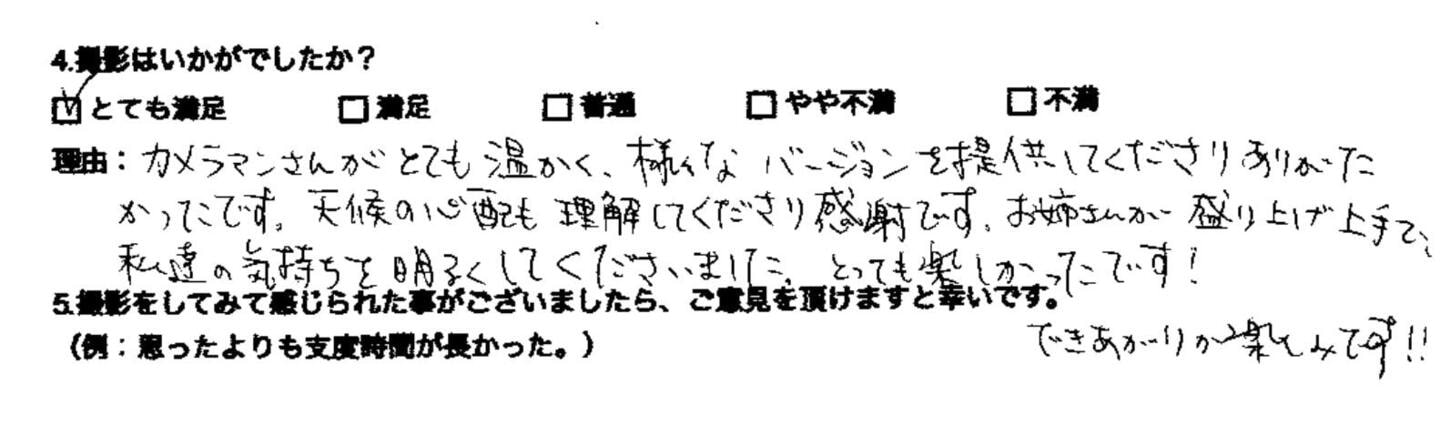 4.撮影はいかがでしたか？
☑とても満足 □満足 □普通 □やや不満 □不満
理由：カメラマンさんがとても温かく、様々なバージョンを提供してくださりありがた
かったです。天候の心配も理解してくださり感謝です。お姉さんが盛り上げ上手で、
私達の気持ちを明るくしてくださいました。とっても楽しかったです！
5.撮影をしてみて感じられた事がございましたら、ご意見を頂けますと幸いです。
（例：思ったよりも支度時間が長かった。）
できあがりが楽しみです!!